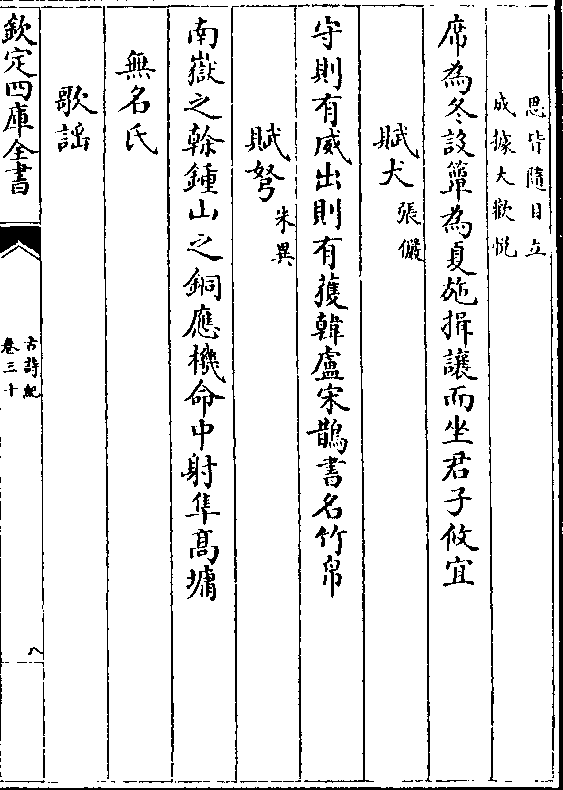 思皆隨目立
成據大歡悅
席為冬設簟為夏施揖讓而坐君子攸宜
賦犬張儼
守則有威出則有獲韓盧宋鵲書名竹帛
賦弩朱異
南嶽之榦鍾山之銅應機命中射隼髙墉
無名氏
歌謡
欽定四庫全書
古詩紀
卷三十
八